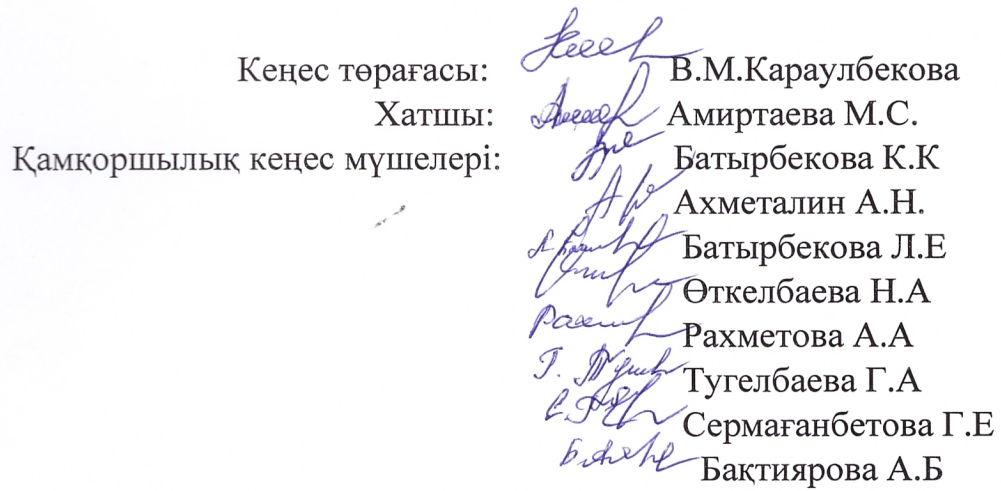 Кеңес төрағасы: В.М.Караулбекова
Хатшы: Амиртаева М.С.
Қамқоршылық кеңес мүшелері: Батырбекова К.К
Ахметалин А.Н.
Батырбекова Л.Е
Өткелбаева Н.А
Рахметова А.А
Тугелбаева Г.А
Сермағанбетова Г.Е
Бақтиярова А.Б